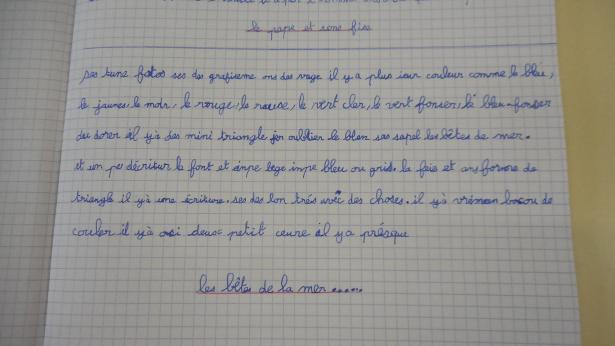 le pape et sons fiss
pas tune fotos ses des grafiseme ons des vage il y a plus ieur couleur comme le bleu,
le jaunes, le noir, le rouge, le rouse, le vert cler, le vert fonser, lé bleu-fonser
du dorer il y'a des mini triangle j'en oublier le blan sas sapel les bêtes de mer.
et un peu décritur le font et impe lege impe bleu ou gris. la feie et ans forme de
triangle il y'a une écriture. ses des lon trés avec des choses. il y'a vrémen bocou de
couler il y'a osi deuse petit ceure il y a présque
les bêtes de la mer......